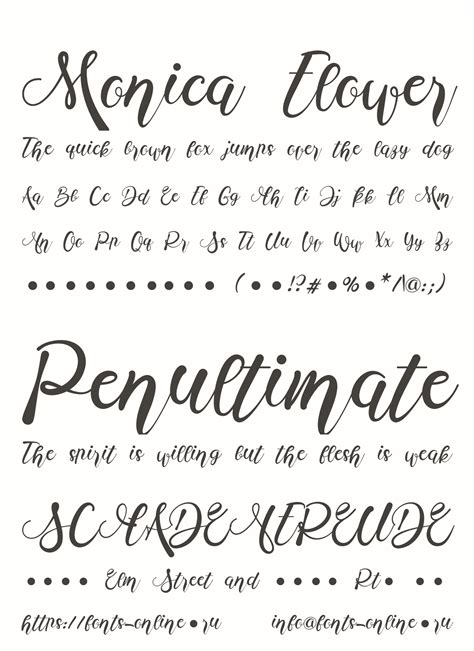 Monica Flower
The quick brown fox jumps over the lazy dog
Aa Bb Cc Dd Ee Ff Gg Hh Ii Jj Kk Ll Mm
Nn Oo Pp Qq Rr Ss Tt Uu Vv Ww Xx Yy Zz
•••••••••• (••!?#•%•*/\@:;)
Penultimate
The spirit is willing but the flesh is weak
SCHADENFREUDE
•••• Elm Street and •••• Rt• ••
https://fonts-online•ru info@fonts-online•ru